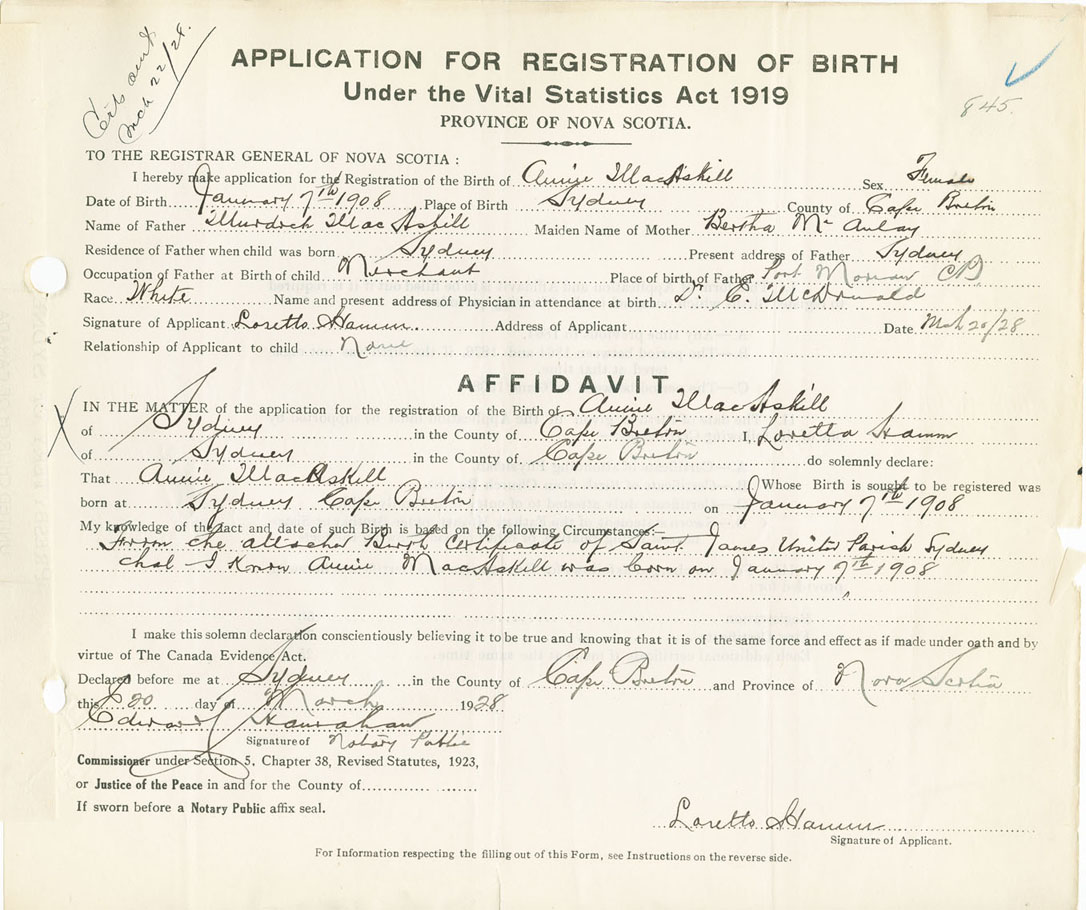 Certs sent
Mch 22/28.
845.
APPLICATION FOR REGISTRATION OF BIRTH
Under the Vital Statistics Act 1919
PROVINCE OF NOVA SCOTIA.
TO THE REGISTRAR GENERAL OF NOVA SCOTIA :
I hereby make application for the Registration of the Birth of Annie MacAskill Sex Female
Date of Birth January 7th 1908 Place of Birth Sydney County of Cape Breton
Name of Father Murdoch MacAskill Maiden Name of Mother Bertha McAulay
Residence of Father when child was born Sydney Present address of Father Sydney
Occupation of Father at Birth of child Merchant Place of birth of Father Port Morien CB
Race White Name and present address of Physician in attendance at birth Dr. E. McDonald
Signature of Applicant Loretto Hamm Address of Applicant Date Mch 20/28
Relationship of Applicant to child None
AFFIDAVIT.
IN THE MATTER of the application for the registration of the Birth of Annie MacAskill
of Sydney in the County of Cape Breton I, Loretta Hamm
of Sydney in the County of Cape Breton do solemnly declare:
That Annie MacAskill Whose Birth is sought to be registered was
born at Sydney Cape Breton on January 7th 1908
My knowledge of the fact and date of such Birth is based on the following Circumstances:—
From the attached Birth Certificate of Saint James United Parish Sydney
that I know Annie MacAskill was born on January 7th 1908
I make this solemn declaration conscientiously believing it to be true and knowing that it is of the same force and effect as if made under oath and by
virtue of The Canada Evidence Act.
Declared before me at Sydney in the County of Cape Breton and Province of Nova Scotia
this 20 day of March 1928
Edward Hanrahan
Signature of Notary Public
Commissioner under Section 5, Chapter 38, Revised Statutes, 1923,
or Justice of the Peace in and for the County of
If sworn before a Notary Public affix seal.
Loretto Hamm
Signature of Applicant.
For Information respecting the filling out of this Form, see Instructions on the reverse side.